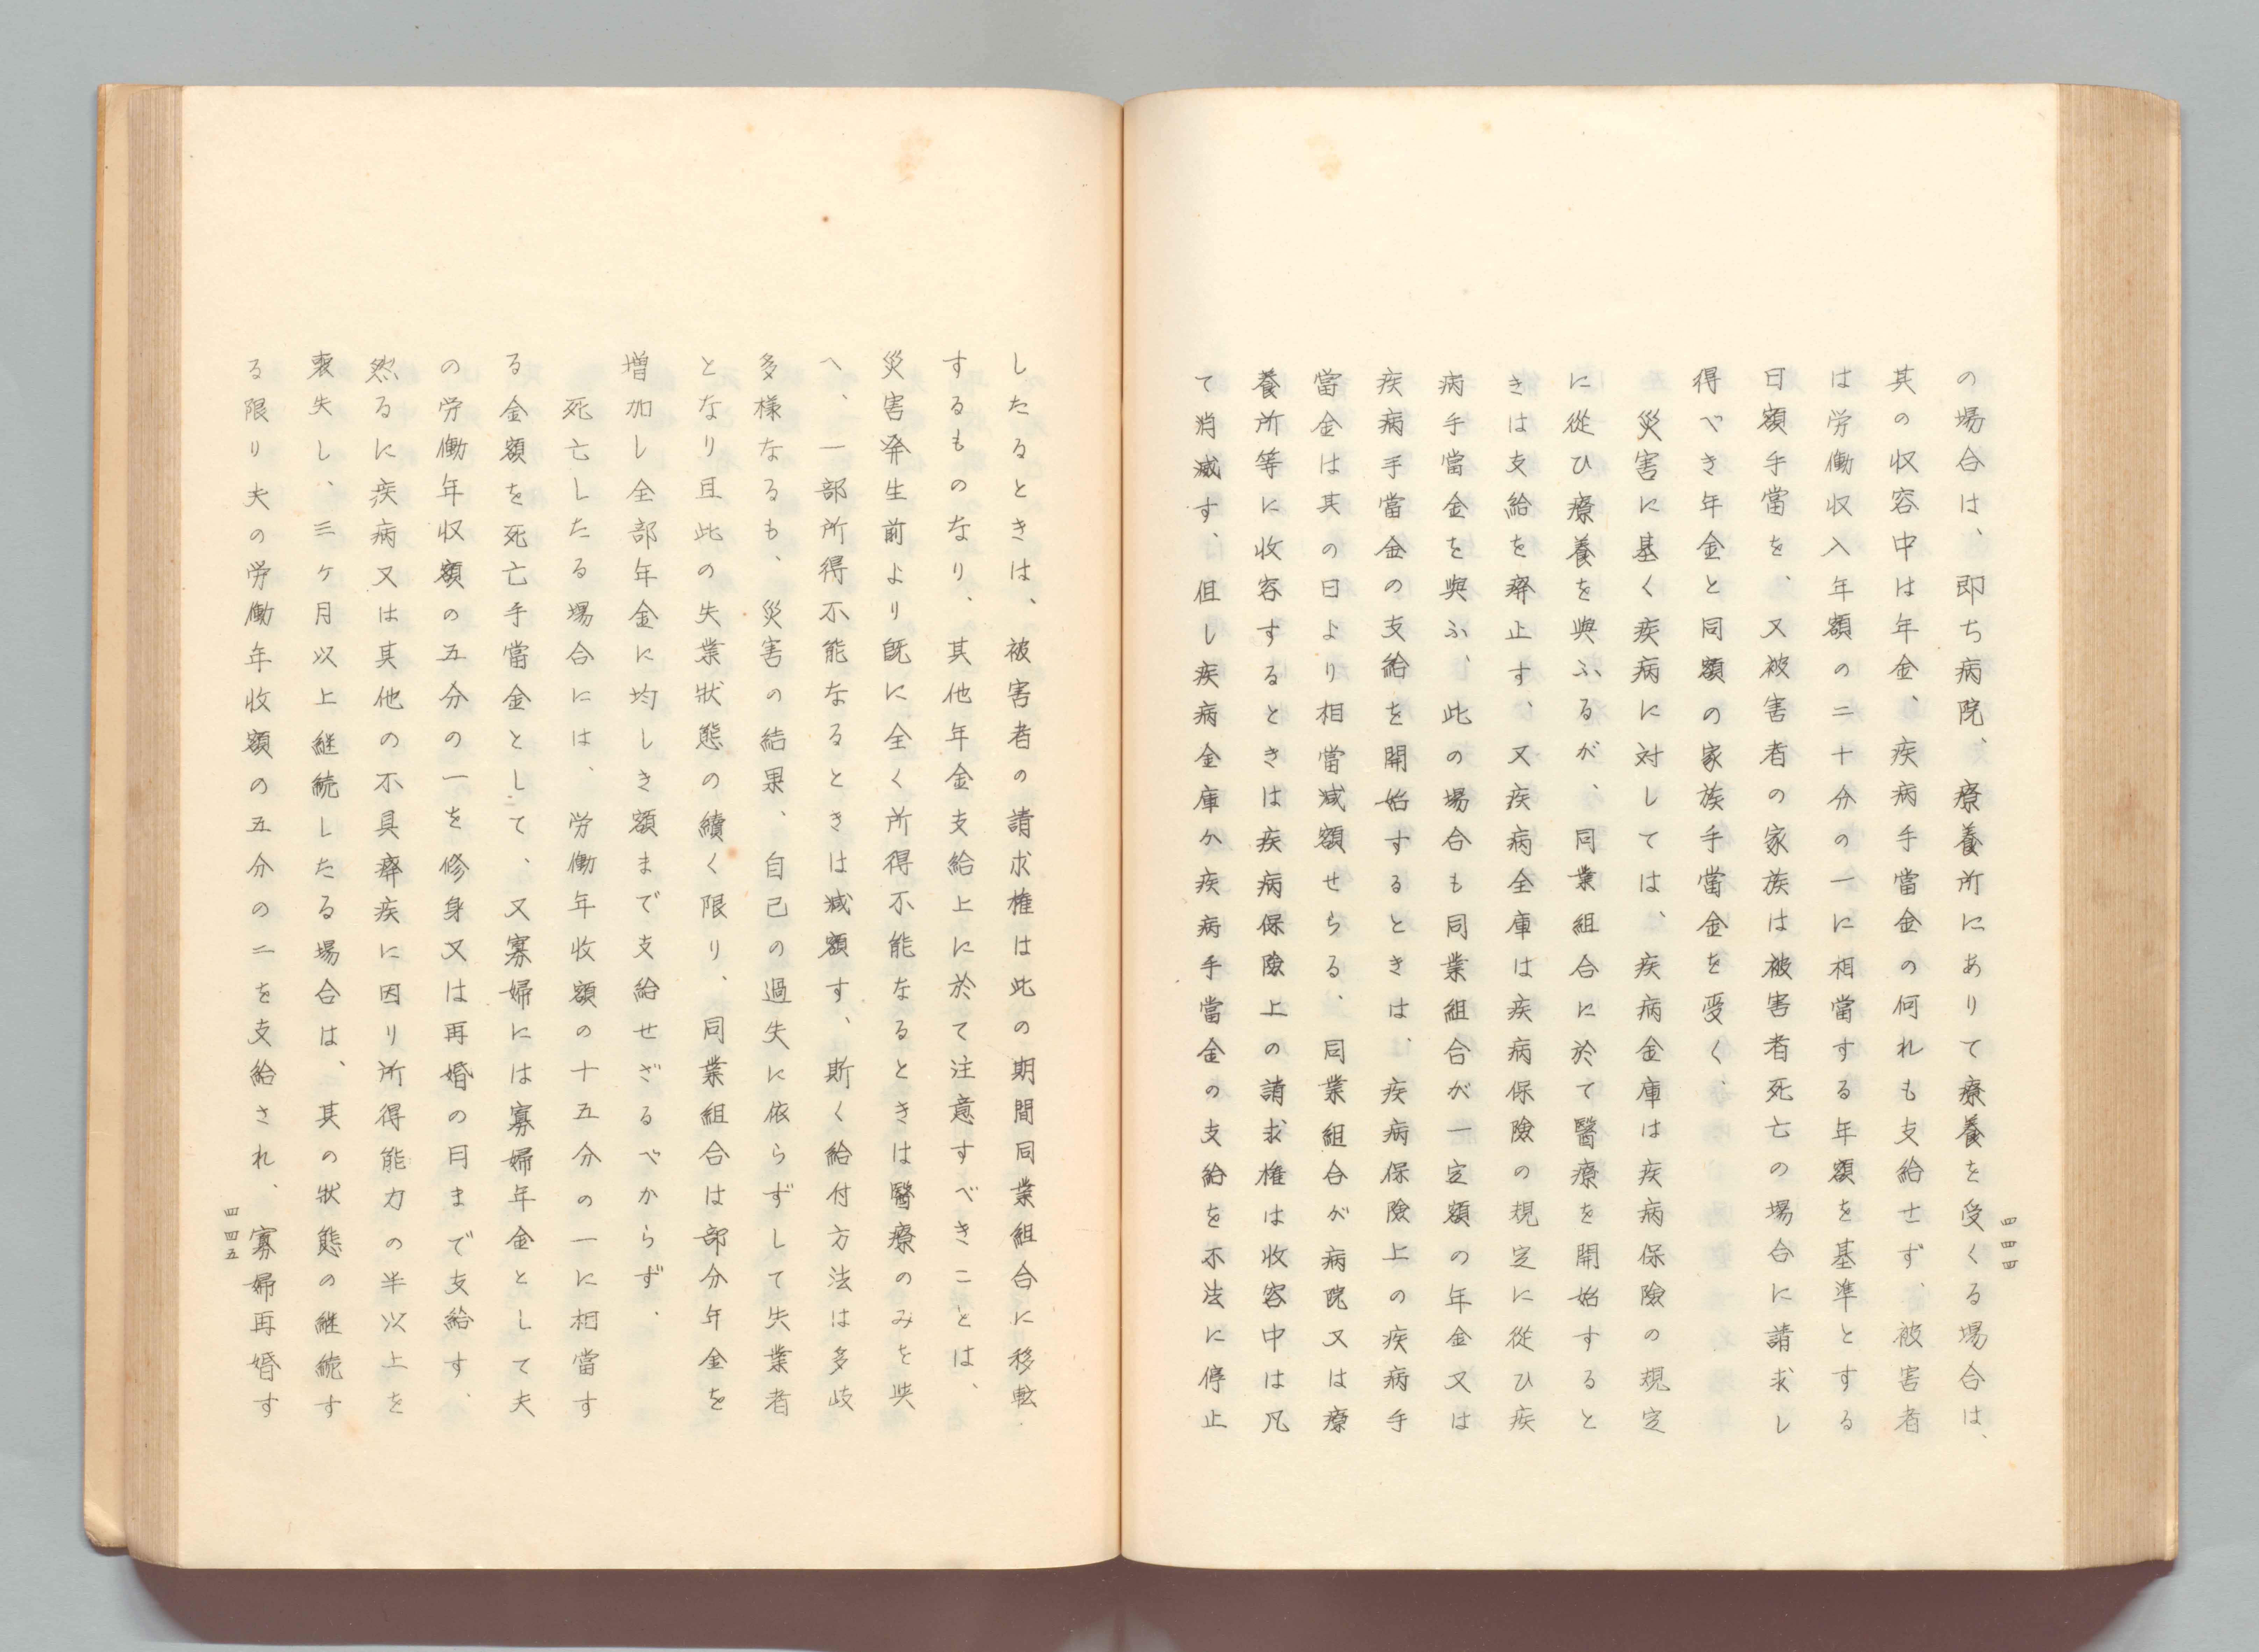 の場合は、即ち病院、療養所にありて療養を受くる場合は、
其の収容中は年金、疾病手當金の何れも支給せず、被害者
は労働収入年額の二十分の一に相當する年額を基準とする
日額手當を、又被害者の家族は被害者死亡の場合に請求し
得べき年金と同額の家族手當金を受く、
災害に基く疾病に対しては、疾病金庫は疾病保険の規定
に從ひ療養を與ふるが、同業組合に於て醫療を開始すると
きは支給を癈止す、又疾病金庫は疾病保険の規定に從ひ疾
病手當金を與ふ、此の場合も同業組合が一定額の年金又は
疾病手當金の支給を開始するときは、疾病保險上の疾病手
當金は其の日より相當減額せらる、同業組合が病院又は療
養所等に收容するときは疾病保險上の請求権は收容中は凡
て消滅す、但し疾病金庫か疾病手當金の支給を不法に停止
四四四
したるときは、被害者の請求権は此の期間同業組合に移転
するものなり、其他年金支給上に於て注意すべきことは、
災害発生前より既に全く所得不能なるときは醫療のみを與
へ、一部所得不能なるときは減額す、斯く給付方法は多岐
多様なるも、災害の結果、自己の過失に依らずして失業者
となり且此の失業狀態の續く限り、同業組合は部分年金を
増加し全部年金に均しき額まで支給せざるべからず、
死亡したる場合には、労働年收額の十五分の一に相當す
る金額を死亡手當金として、又寡婦には寡婦年金として夫
の労働年収額の五分の一を修身又は再婚の日まで支給す、
然るに疾病又は其他の不具癈疾に因り所得能力の半以上を
喪失し、三ヶ月以上継続したる場合は、其の狀態の継続す
る限り夫の労働年收額の五分の二を支給され、寡婦再婚す
四四五